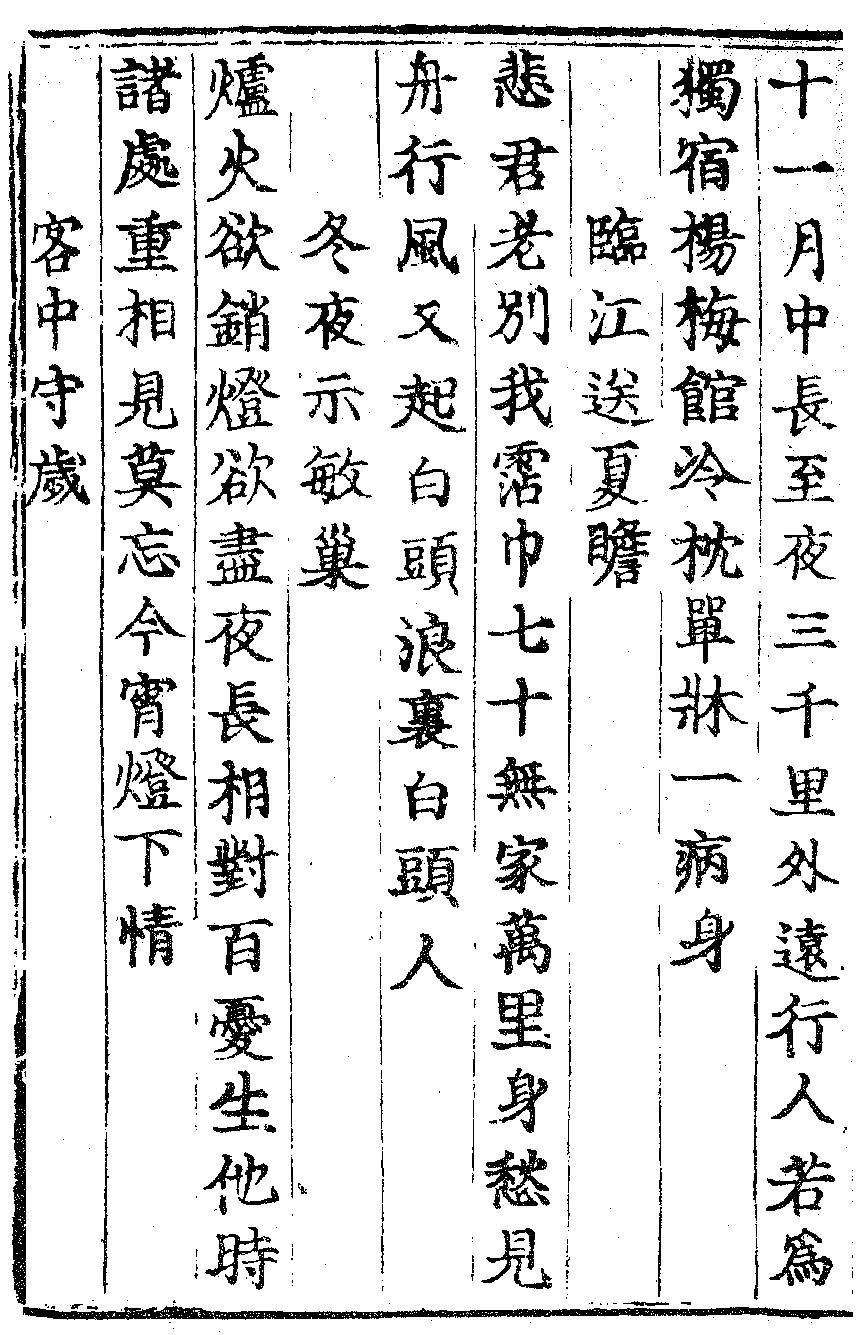 十一月中長至夜三千里外遠行人若爲
獨宿楊梅館冷枕單牀一病身
臨江送夏瞻
悲君老別我霑巾七十無家萬里身愁見
舟行風又起白頭浪裏白頭人
冬夜示敏巢
爐火欲銷燈欲盡夜長相對百憂生他時
諸處重相見莫忘今宵燈下情
客中守歲